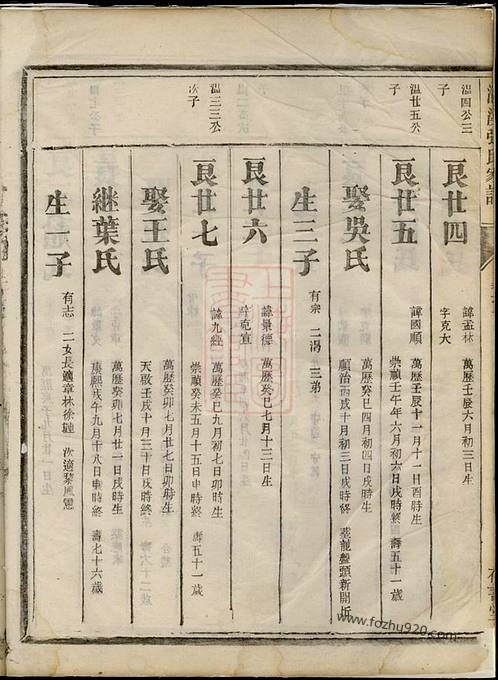 溫四公三子
艮廿四
諱孟林 萬歷壬辰六月初三日生
字克大
溫廿五公子
艮廿五
諱國順 萬歷壬辰十一月十一日酉時生
崇順壬午年六月初六日戌時終 壽五十一歲
娶吳氏
萬歷癸巳四月初四日戌時生
順治丙戌十月初三日戌時終 塟龍盤頭新開坵
生三子
有宗 二溈 三弟
艮廿六
諱景德 萬歷癸巳七月十三日生
字克宣
溫三三公次子
艮廿七
諱九經 萬歷癸巳九月初七日卯時生
崇順癸未五月十五日申時終 壽五十一歲
娶王氏
萬歷癸卯七月廿七日卯時生
天啟壬戌十月三十日戌時終
継葉氏
萬歷癸卯七月廿一日戌時生
康熙戊午九月十八日申時終 壽七十六歲
生一子
有志 二女長適章林徐 次適黎
www.fozhu920.com